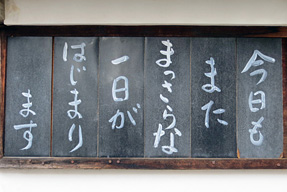 今日も
また
まっさらな
一日が
はじまり
ます